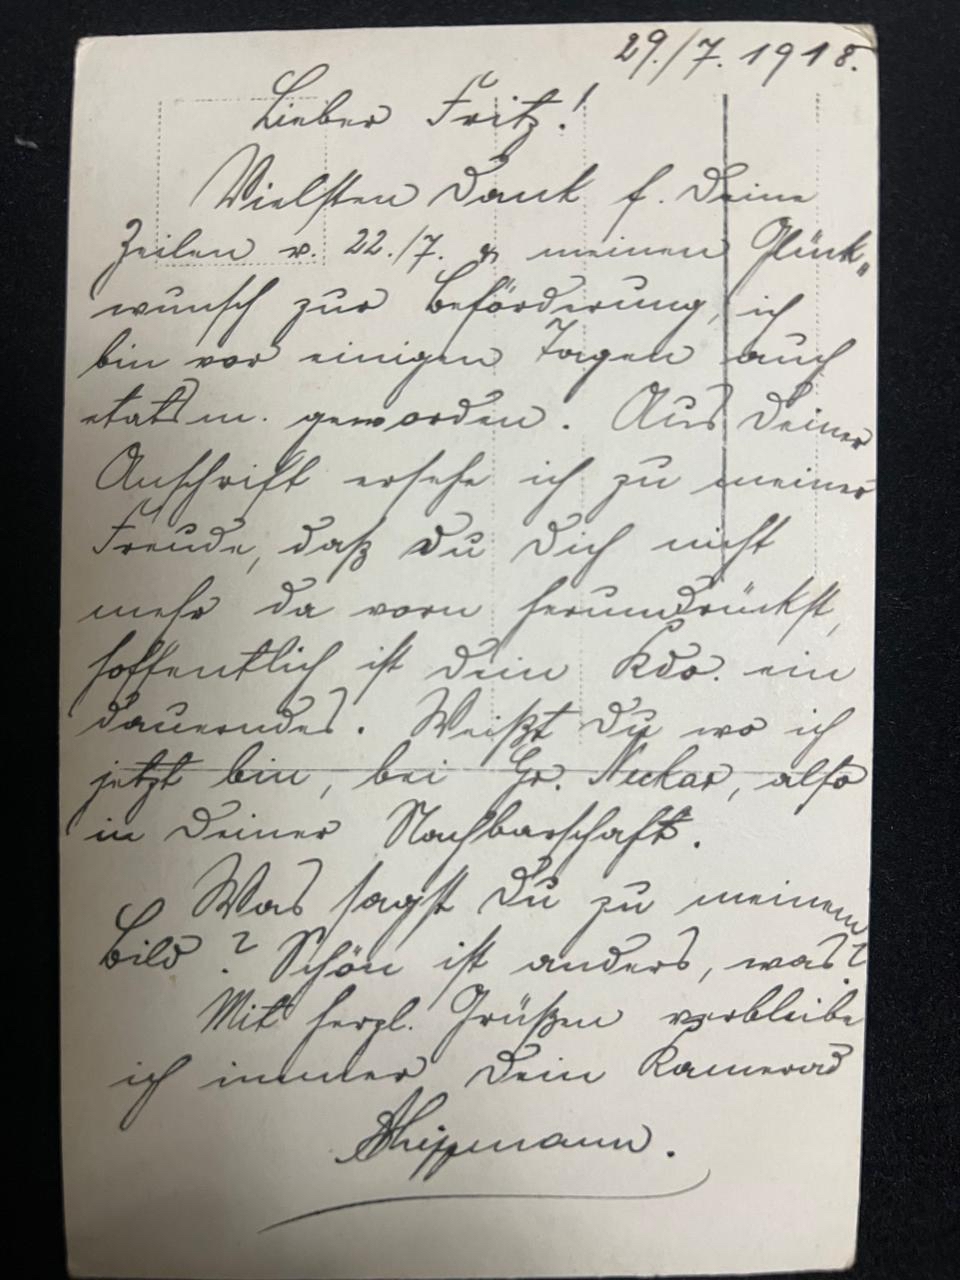 29./7. 1918.
Lieber Fritz!
Vielsten Dank f. Deine
Zeilen v. 22./7. & meinen Glück„
wunsch zur Beförderung, ich
bin vor einigen Tagen auch
etatsm. geworden. Aus Deiner
Anschrift ersehe ich zu meiner
Freude, daß Du Dich nicht
mehr da vorn herumdrückst,
hoffentlich ist dein Kdo. ein
dauerndes. Weißt Du wo ich
jetzt bin, bei Gr. Neckar, also
in Deiner Nachbarschaft.
Was sagst Du zu meinem
Bild? Schön ist anders, was?
Mit herzl. Grüßen verbleibe
ich immer Dein Kamerad